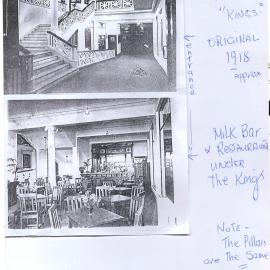 "KINGS"
ORIGINAL
1918
approx.
entrance
Milk Bar
& RESTAURANT
under
The Kings
Note -
The Pillars
are the Same